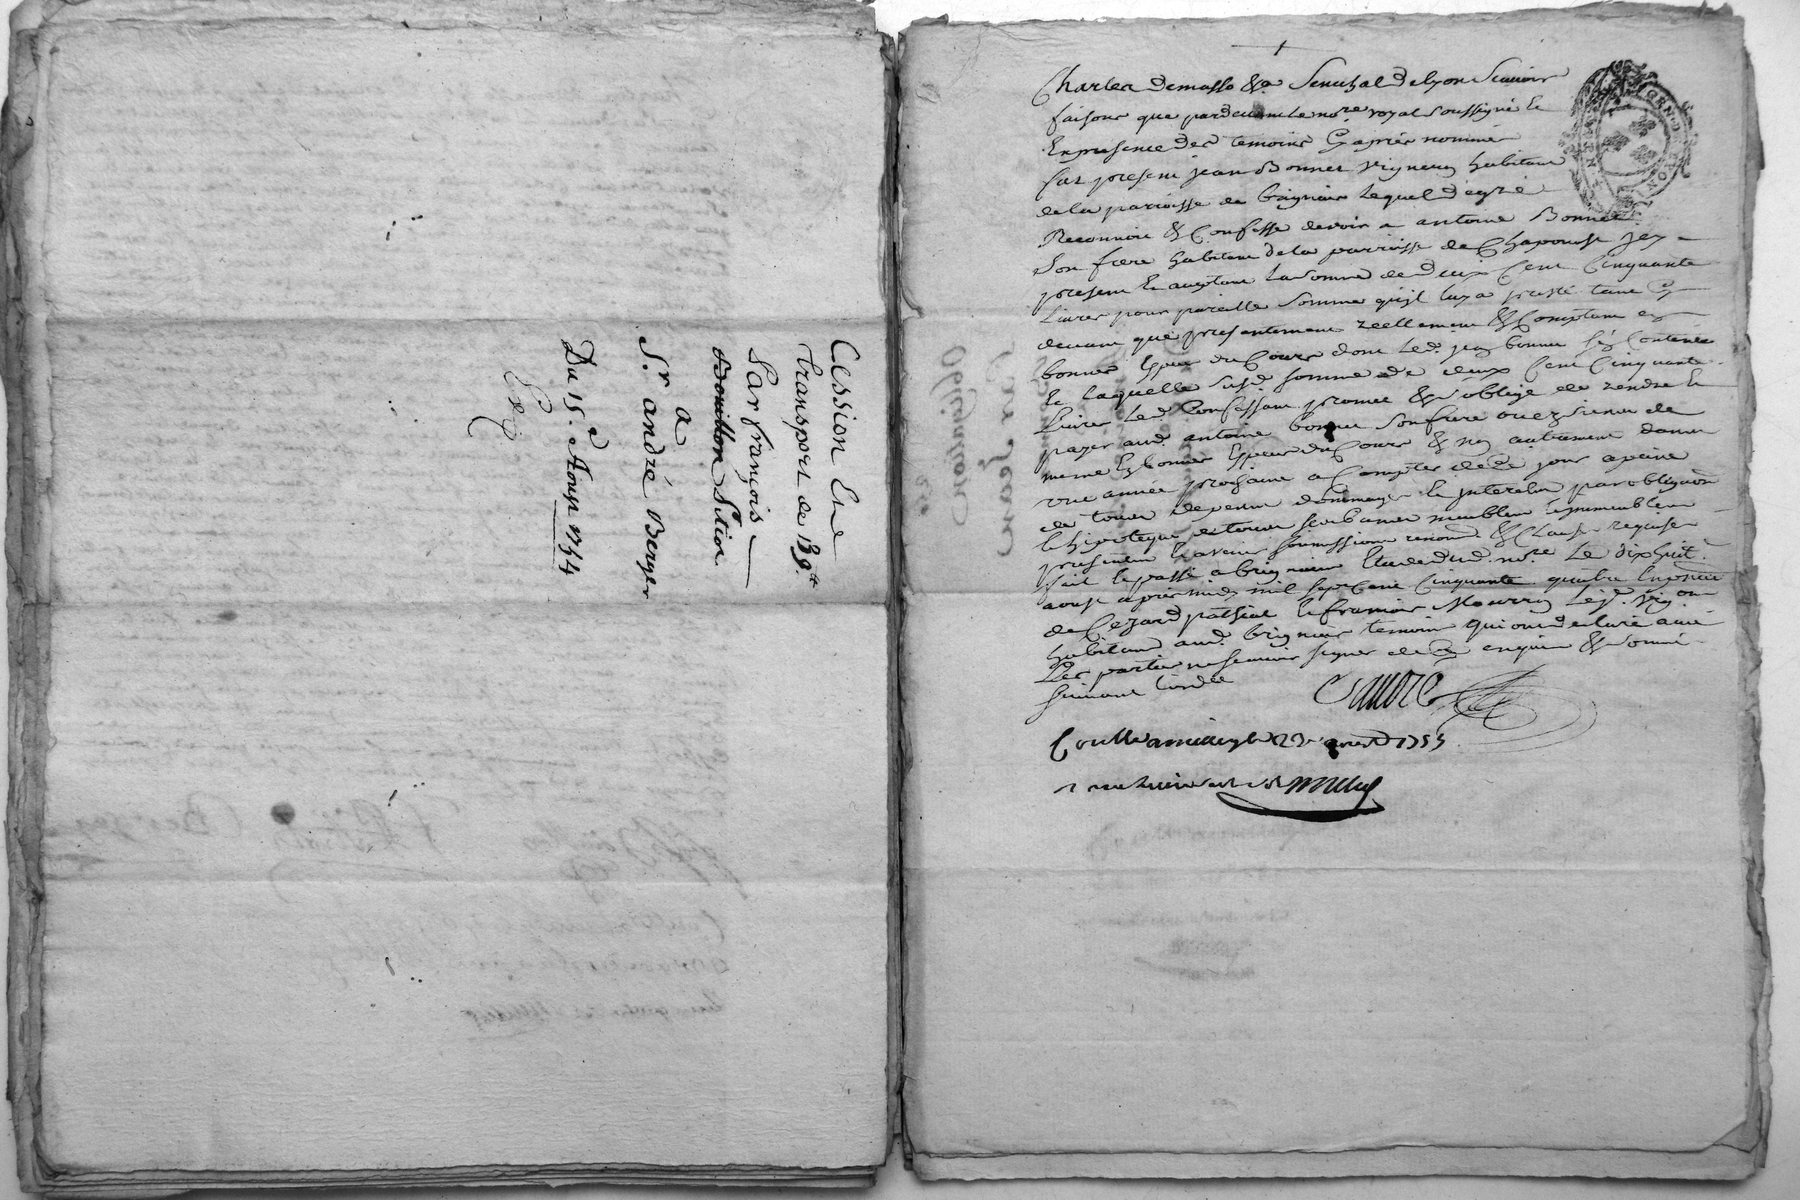 Cession Et
transport de 139.tt
Par françois
Bouillon Sition
a
S.r andré Berger
Du 15.e Aoust 1754
Exp
Charles demasso &a Senechal de lyon Scavoir
faisons que pardevant le no.re royal soussigné Et
En presence des temoins Cy aprés nommés
fut present jean Bonnet vigneron habitant
de la parroisse de brignais lequel de gré
Reconnoit & Confesse devoir a antoine Bonnet
Son frere habitant de la parroisse de Chaponost jcy
present Et acceptant la Somme de deux Cent Cinquante
Livres pour pareille Somme qu'jl luy a presté tant Cy
devant que presentement reellement & Comptant en
bonnes Especes du Cours dont led. jean bonnet s'est Contenté
Et laquelle susd. somme de deux Cent Cinquante
Livres Led. Confessant promet & s'oblige de rendre Et
payer aud. antoine bonnet Son frere ou es siens de
meme En bonnes Especes du Cours & non autrement dans
une année prochaine a Compter de Ce jour a peine
de tous depens dommages Et jnterests par obligaon
Et hipoteque de tous ses biens meubles Et jmmeubles
presents Et avenir soumissions renonc. & Clauses requises
fait Et passé a brignais Etude dud. no.re Le dixhuit
aoust aprés midy mil sept Cent Cinquante quatre En presence
de Cezard pathiat Et francois Mourron Led. vig.on
habitans aud. brignais temoins qui ont declaré avec
Les parties ne Scavoir signer de Ce enquis & Sommés
Suivant L'ordce
Controllé a
aoust 1754